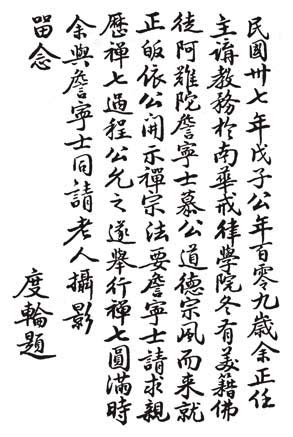 民國卅七年戊子公年百零九歲余正任
主講教務於南華戒律學院冬有美籍佛
徒阿難院詹寧士慕公道德宗風而来就
正皈依公開示禪宗法要詹寧士請求親
歷禪七過程公允之遂舉行禪七圓滿時
余與詹寧士同請老人攝影
留念
度輪題